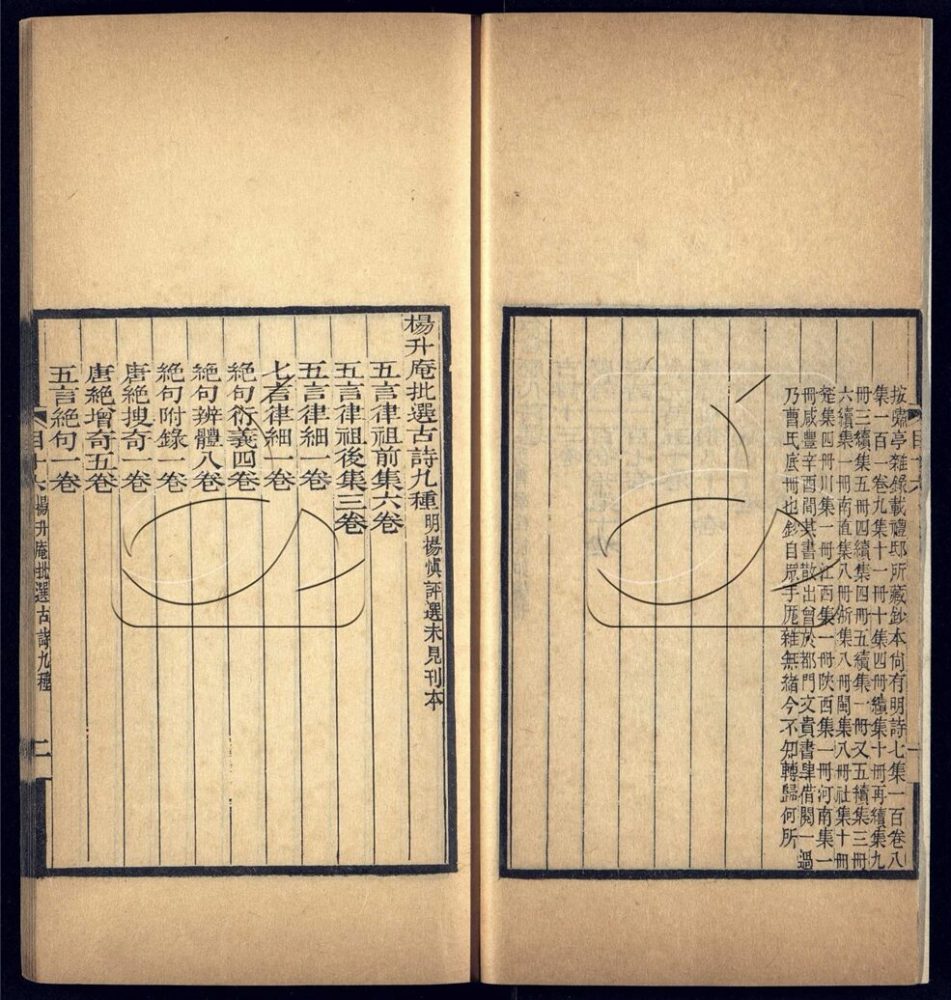 按嘯亭雜錄載禮邸所藏鈔本尙有明詩七集一百卷八
集一百一卷九集十一冊十集四冊續集十冊再續集九
冊三續集五冊四續集四冊五續集一冊又五續集三冊
六續集一冊南直集八冊浙集八冊閩集八冊社集十冊
楚集四冊川集一冊江西集一冊陝西集一冊河南集一
冊咸豐辛酉間其書散出曾於都門文貴書肆借閱一過
乃曹氏底冊也鈔自眾手厖雜無緒今不知轉歸何所
楊升庵批選古詩九種 明楊慎評選未見刊本
五言律祖前集六卷
五言律祖後集三卷
五言律細一卷
七言律細一卷
絕句衍義四卷
絕句辨體八卷
絕句附錄一卷
唐絕搜奇一卷
唐絕增奇五卷
五言絕句一卷
目十六 楊升庵批選古詩九種 二